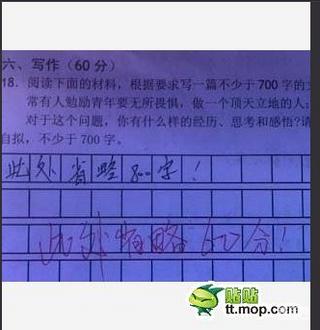 六、写作(60分)
18. 阅读下面的材料，根据要求写一篇不少于700字的文
常有人勉励青年要无所畏惧，做一个顶天立地的人;
对于这个问题，你有什么样的经历、思考和感悟?请
自拟，不少于700字。
此处省略700字!
此处省略60分!
贴贴
tt.mop.com